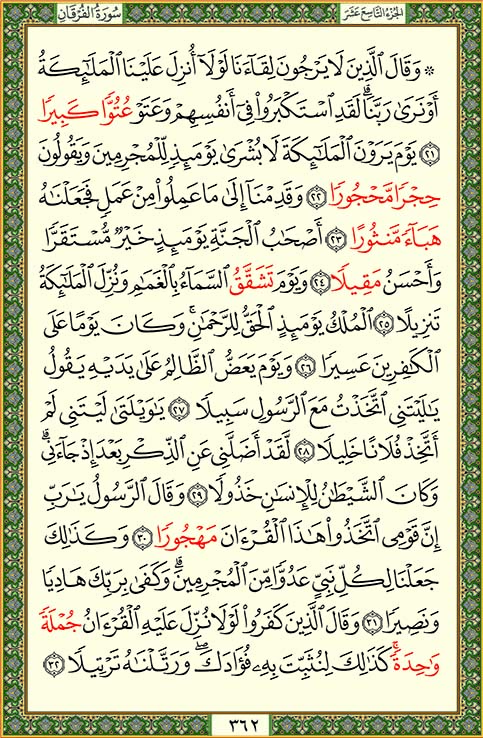 الجزء التاسع عشر
سورة الفرقان
۞ وَقَالَ ٱلَّذِينَ لَا يَرْجُونَ لِقَآءَنَا لَوْلَآ أُنزِلَ عَلَيْنَا ٱلْمَلَٰٓئِكَةُ
أَوْ نَرَىٰ رَبَّنَا ۗ لَقَدِ ٱسْتَكْبَرُوا۟ فِىٓ أَنفُسِهِمْ وَعَتَوْ عُتُوًّا كَبِيرًا
٢١ يَوْمَ يَرَوْنَ ٱلْمَلَٰٓئِكَةَ لَا بُشْرَىٰ يَوْمَئِذٍ لِّلْمُجْرِمِينَ وَيَقُولُونَ
حِجْرًا مَّحْجُورًا ٢٢ وَقَدِمْنَآ إِلَىٰ مَا عَمِلُوا۟ مِنْ عَمَلٍ فَجَعَلْنَٰهُ
هَبَآءً مَّنثُورًا ٢٣ أَصْحَٰبُ ٱلْجَنَّةِ يَوْمَئِذٍ خَيْرٌ مُّسْتَقَرًّا
وَأَحْسَنُ مَقِيلًا ٢٤ وَيَوْمَ تَشَقَّقُ ٱلسَّمَآءُ بِٱلْغَمَٰمِ وَنُزِّلَ ٱلْمَلَٰٓئِكَةُ
تَنزِيلًا ٢٥ ٱلْمُلْكُ يَوْمَئِذٍ ٱلْحَقُّ لِلرَّحْمَٰنِ ۚ وَكَانَ يَوْمًا عَلَى
ٱلْكَٰفِرِينَ عَسِيرًا ٢٦ وَيَوْمَ يَعَضُّ ٱلظَّالِمُ عَلَىٰ يَدَيْهِ يَقُولُ
يَٰلَيْتَنِى ٱتَّخَذْتُ مَعَ ٱلرَّسُولِ سَبِيلًا ٢٧ يَٰوَيْلَتَىٰ لَيْتَنِى لَمْ
أَتَّخِذْ فُلَانًا خَلِيلًا ٢٨ لَّقَدْ أَضَلَّنِى عَنِ ٱلذِّكْرِ بَعْدَ إِذْ جَآءَنِى ۗ
وَكَانَ ٱلشَّيْطَٰنُ لِلْإِنسَٰنِ خَذُولًا ٢٩ وَقَالَ ٱلرَّسُولُ يَٰرَبِّ
إِنَّ قَوْمِى ٱتَّخَذُوا۟ هَٰذَا ٱلْقُرْءَانَ مَهْجُورًا ٣٠ وَكَذَٰلِكَ
جَعَلْنَا لِكُلِّ نَبِىٍّ عَدُوًّا مِّنَ ٱلْمُجْرِمِينَ ۗ وَكَفَىٰ بِرَبِّكَ هَادِيًا
وَنَصِيرًا ٣١ وَقَالَ ٱلَّذِينَ كَفَرُوا۟ لَوْلَا نُزِّلَ عَلَيْهِ ٱلْقُرْءَانُ جُمْلَةً
وَٰحِدَةً ۚ كَذَٰلِكَ لِنُثَبِّتَ بِهِۦ فُؤَادَكَ ۖ وَرَتَّلْنَٰهُ تَرْتِيلًا ٣٢
٣٦٢